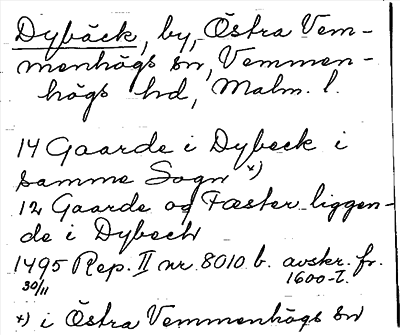 Dybäck, by, Östra Vem-
menhögs sn, Vemmen-
högs hd, Malm. l.
14 Gaarde i Dybeck i
samme Sogn *)
12 Gaarde og Fæster liggen-
de i Dybeck
1495 Rep. II nr. 8010 b. avskr. fr.
30/11 1600-t.
*) i Östra Vemmenhögs sn